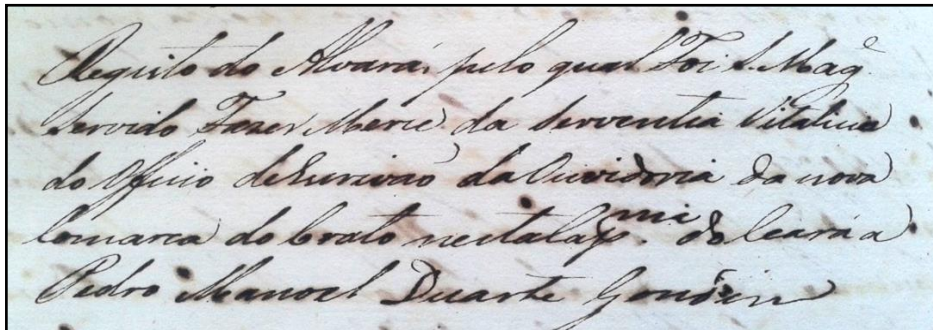 Registo do Alvará, pelo qual Foi S. Mag.e
Servido Fazer Merce da Serventia Vitalicia
do Officio de Escrivaõ da Ouvidoria da nova
Comarca do Crato nesta Cap.mia do Ceará a
Pedro Manoel Duarte Gondin